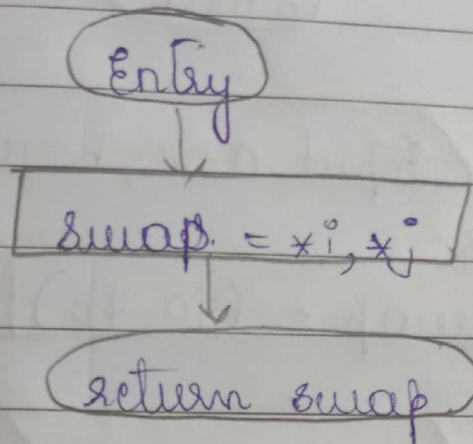 Entry
swap. = *i, *j
return swap